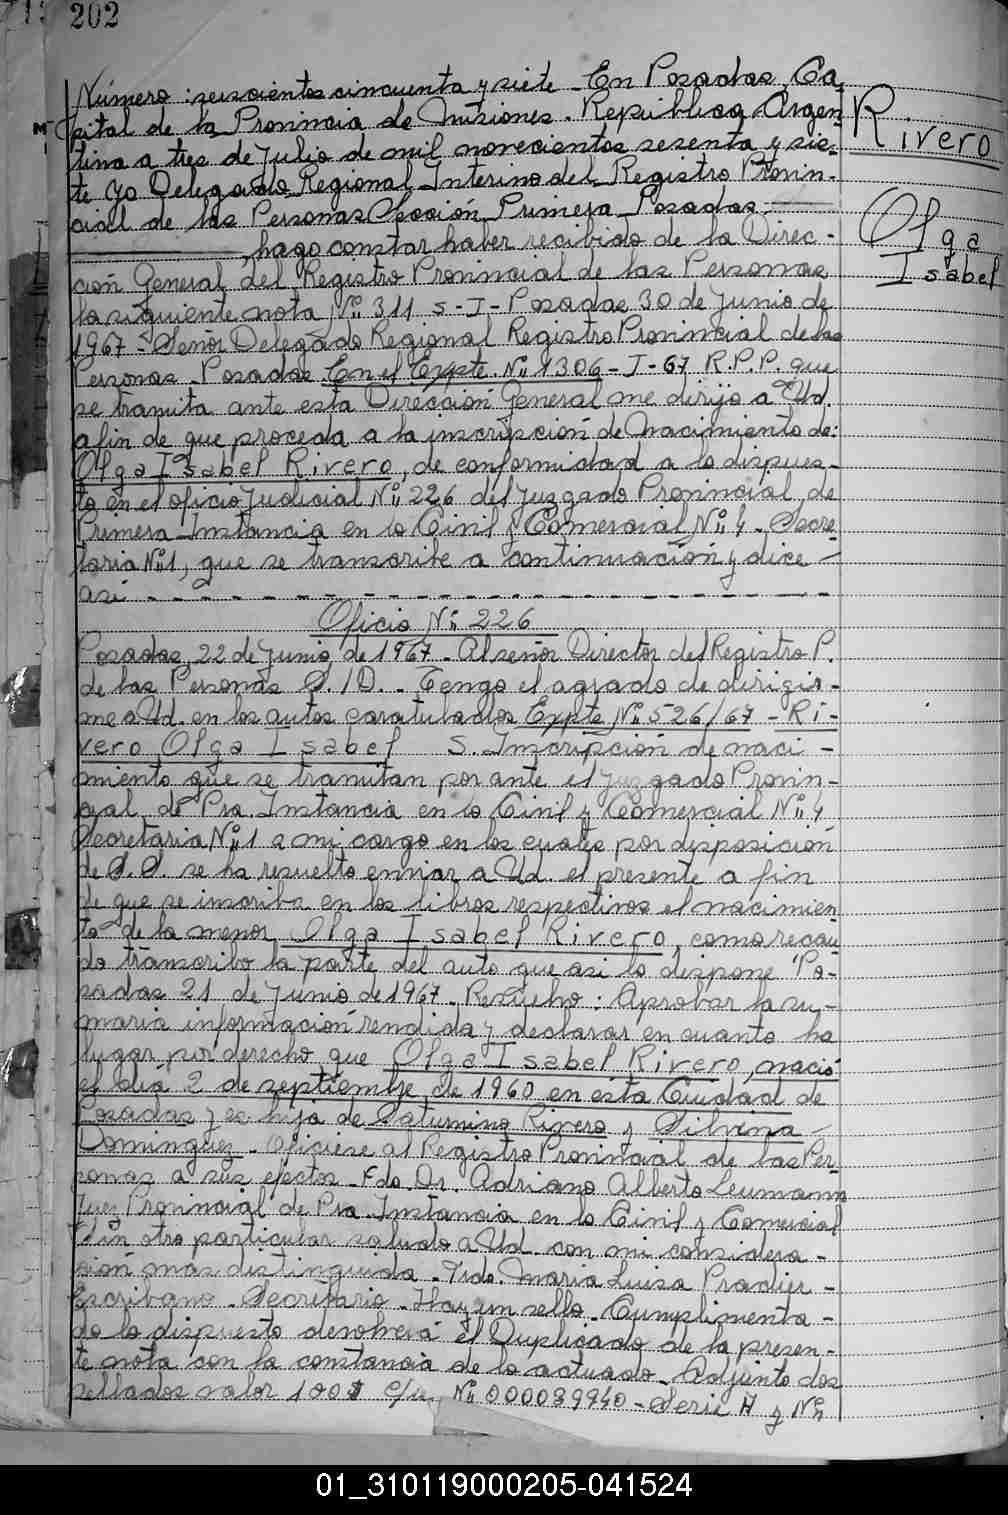 202
Número: seiscientos cincuenta y siete - En Posadas, Ca
pital de la Provincia de Misiones. República Argen
tina a tres de Julio de mil novecientos sesenta y sie-
te yo Delegado Regional Interino del Registro Provin-
cial de las Personas Sección Primera Posadas.
hago constar haber recibido de la Direc-
ción General del Registro Provincial de las Personas
la siguiente nota Nº 311 S-I- Posadas 30 de Junio de
1967 - Señor Delegado Regional Registro Provincial de las
Personas - Posadas En el Expte. Nº 1306-I-67 R.P.P. que
se tramita ante esta Dirección General me dirijo a Ud.
a fin de que proceda a la inscripción de Nacimiento de:
Olga Isabel Rivero, de conformidad a lo dispues-
to en el oficio Judicial Nº 226 del Juzgado Provincial de
Primera Instancia en lo Civil y Comercial Nº 4 - Secre
taria Nº 1, que se transcribe a continuación y dice
asi
Oficio Nº 226
Posadas, 22 de Junio de 1967 - Al señor Director del Registro P.
de las Personas S./D. - Tengo el agrado de dirigir-
me a Ud. en los autos caratulados Expte Nº 526/67 - Ri-
vero Olga Isabel S. Inscripción de naci-
miento que se tramitan por ante el Juzgado Provin-
cial de Pra. Instancia en lo Civil y Comercial Nº 4
Secretaria Nº 1 a mi cargo en los cuales por disposición
de S.S. se ha resuelto enviar a Ud. el presente a fin
de que se inscriba en los libros respectivos el nacimien
to de la menor Olga Isabel Rivero, como recau
do transcribo la parte del auto que asi lo dispone "Po-
sadas 21 de Junio de 1967 - Resuelvo: Aprobar la su-
maria información rendida y declarar en cuanto ha
lugar por derecho que Olga Isabel Rivero, nació
el día 2 de septiembre de 1960 en esta Ciudad de
Posadas y es hija de Saturnino Rivero y Silvina
Dominguez - Oficiese al Registro Provincial de las Per-
sonas a sus efectos - Fdo. Dr. Adriano Alberto Leumann
Juez Provincial de Pra. Instancia en lo Civil y Comercial
Sin otro particular saludo a Ud. con mi considera-
ción mas distinguida - Fdo. Maria Luisa Pradier -
Escribano - Secretario - Hay un sello - Cumplimenta-
do lo dispuesto devolverá el Duplicado de la presen-
te nota con la constancia de lo actuado - Adjunto dos
sellados valor 100$ c/u Nº 000089940 - Serie A y Nº
Rivero
Olga
Isabel
01_310119000205-041524